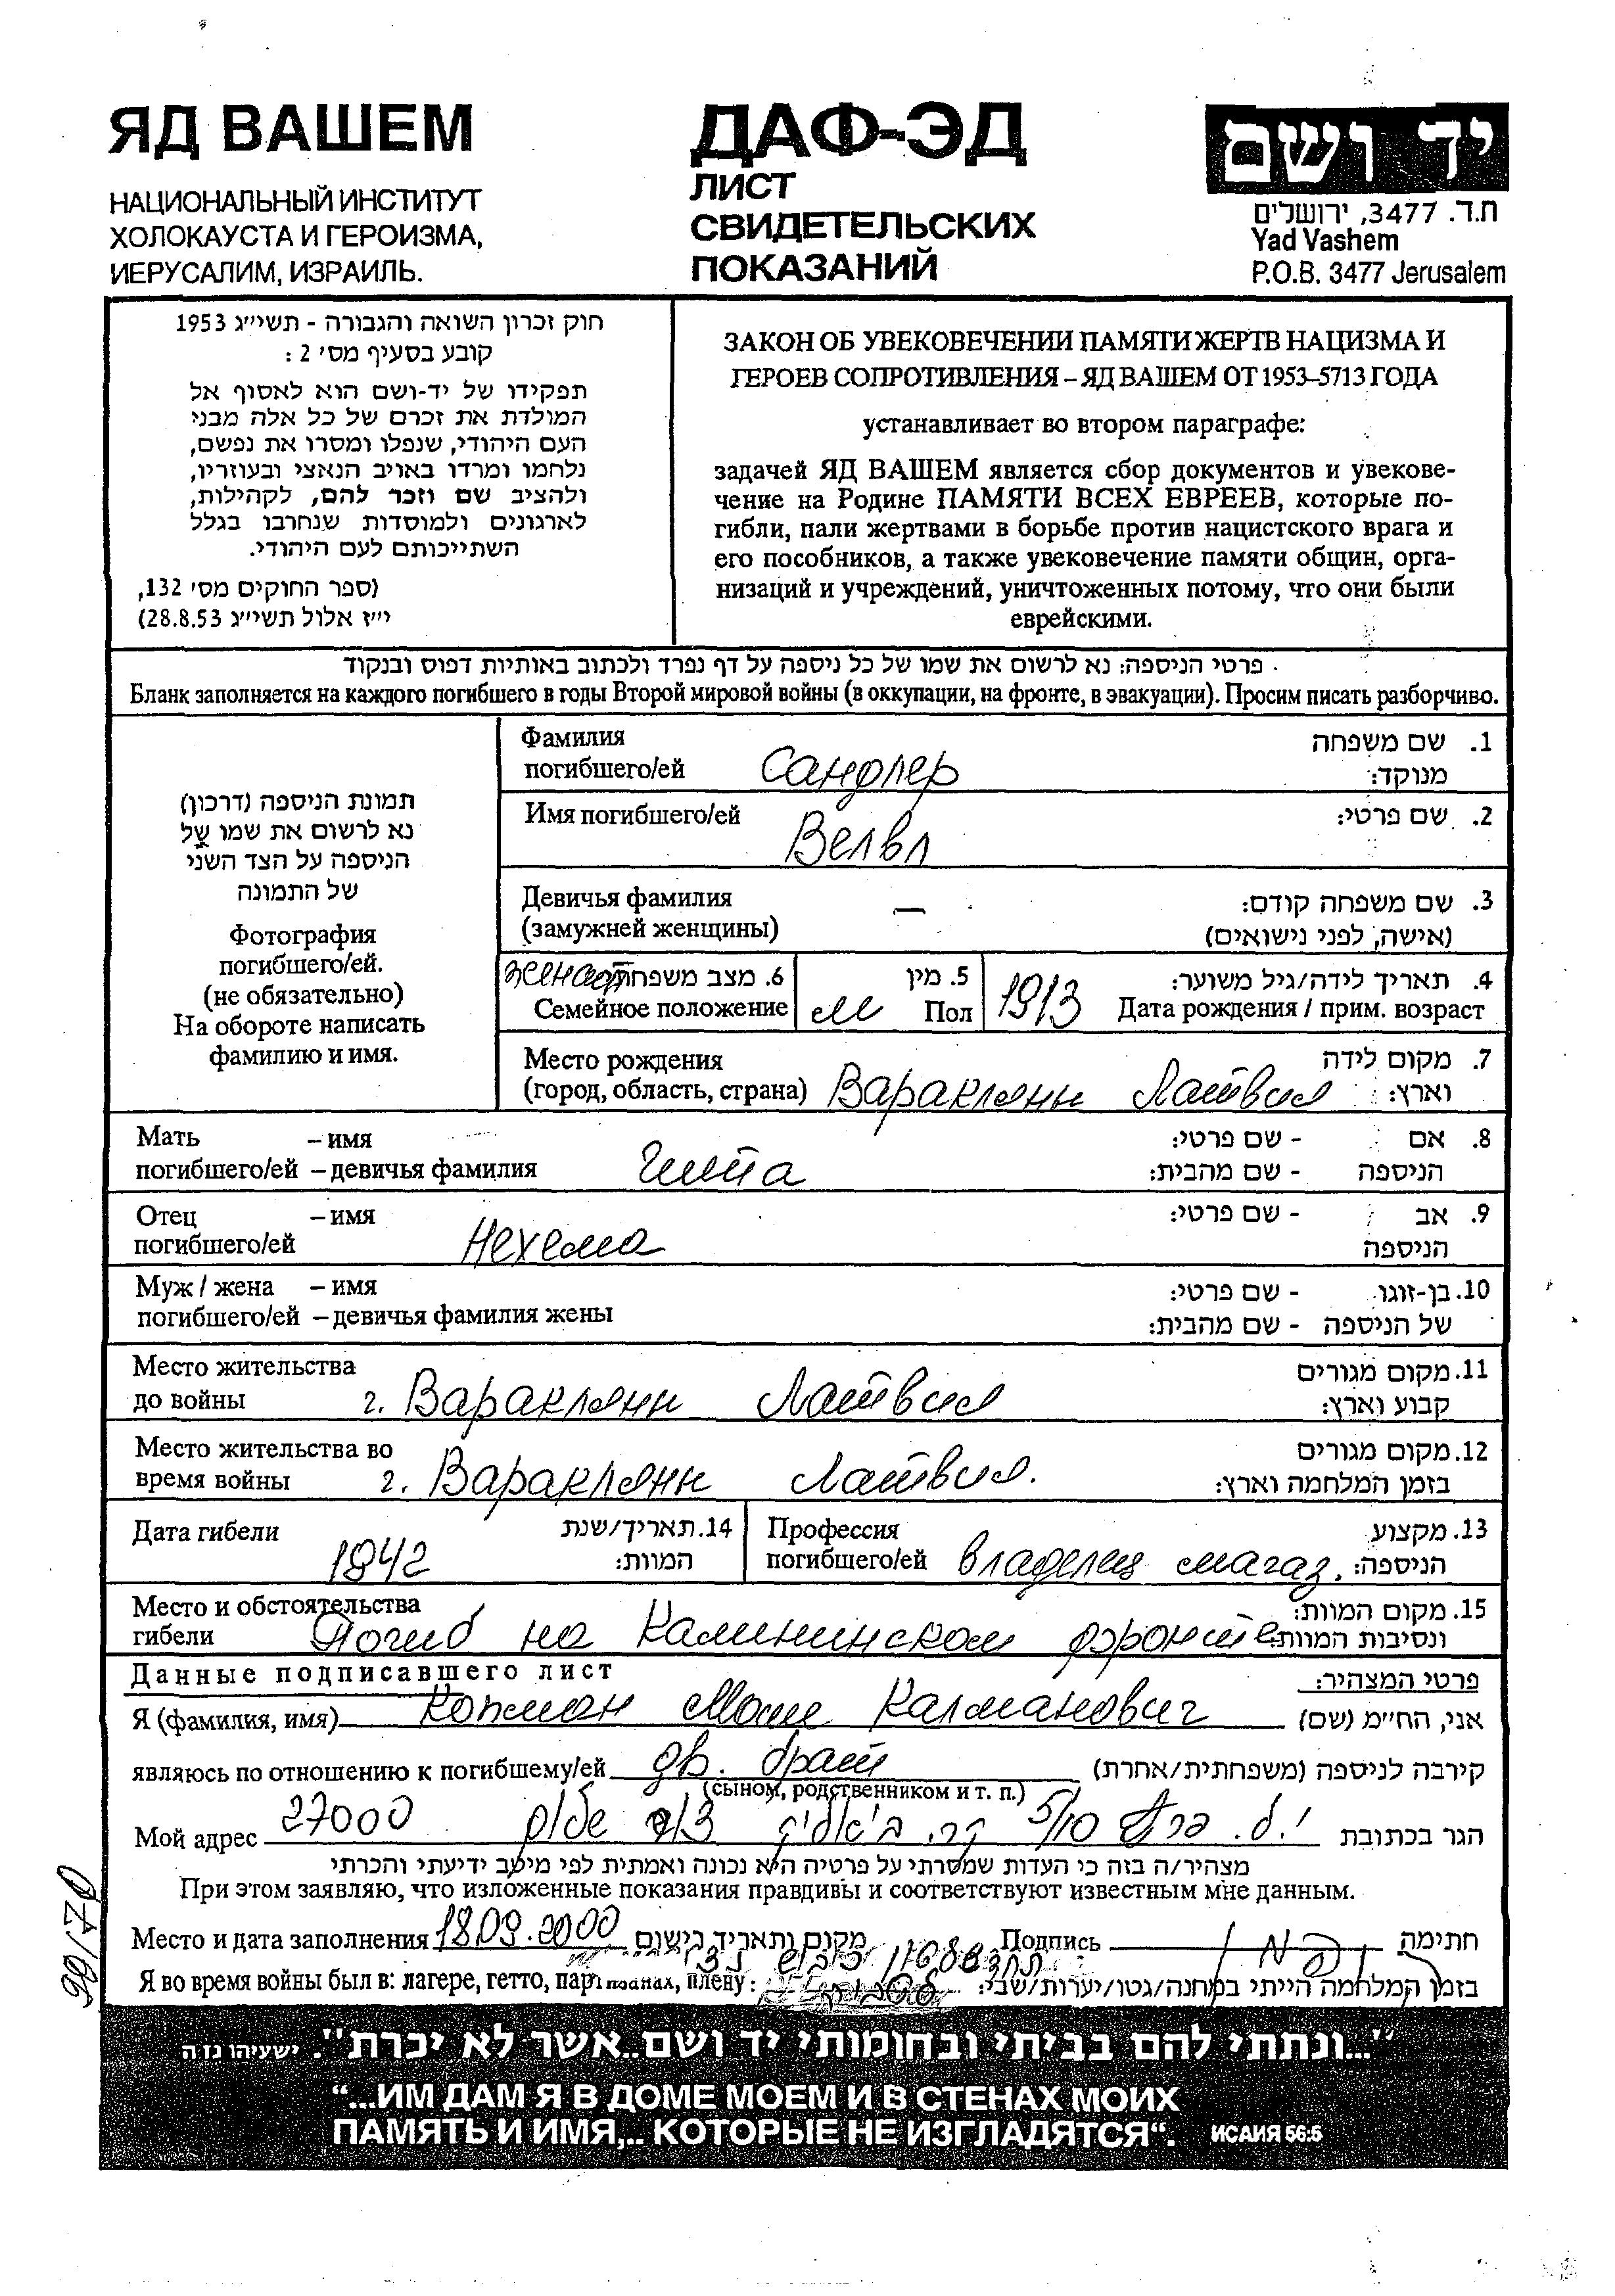 ЯД ВАШЕМ
НАЦИОНАЛЬНЫЙ ИНСТИТУТ
ХОЛОКАУСТА И ГЕРОИЗМА,
ИЕРУСАЛИМ, ИЗРАИЛЬ.
ДАФ-ЭД
ЛИСТ
СВИДЕТЕЛЬСКИХ
ПОКАЗАНИЙ
יד ושם
ת.ד. 3477, ירושלים
Yad Vashem
P.O.B. 3477 Jerusalem
חוק זכרון השואה והגבורה - תשי״ג 1953
קובע בסעיף מס׳ 2 :
תפקידו של יד-ושם הוא לאסוף אל
המולדת את זכרם של כל אלה מבני
העם היהודי, שנפלו ומסרו את נפשם,
נלחמו ומרדו באויב הנאצי ובעוזריו,
ולהציב שם וזכר להם, לקהילות,
לארגונים ולמוסדות שנחרבו בגלל
השתייכותם לעם היהודי.
(ספר החוקים מס׳ 132,
י״ז אלול תשי״ג 28.8.53)
ЗАКОН ОБ УВЕКОВЕЧЕНИИ ПАМЯТИ ЖЕРТВ НАЦИЗМА И
ГЕРОЕВ СОПРОТИВЛЕНИЯ – ЯД ВАШЕМ ОТ 1953–5713 ГОДА
устанавливает во втором параграфе:
задачей ЯД ВАШЕМ является сбор документов и увекове-
чение на Родине ПАМЯТИ ВСЕХ ЕВРЕЕВ, которые по-
гибли, пали жертвами в борьбе против нацистского врага и
его пособников, а также увековечение памяти общин, орга-
низаций и учреждений, уничтоженных потому, что они были
еврейскими.
פרטי הניספה: נא לרשום את שמו של כל ניספה על דף נפרד ולכתוב באותיות דפוס ובנקוד
Бланк заполняется на каждого погибшего в годы Второй мировой войны (в оккупации, на фронте, в эвакуации). Просим писать разборчиво.
תמונת הניספה (דרכון)
נא לרשום את שמו של
הניספה על הצד השני
של התמונה
Фотография
погибшего/ей.
(не обязательно)
На обороте написать
фамилию и имя.
Фамилия 1. שם משפחה
погибшего/ей Сандлер מנוקד:
Имя погибшего/ей 2. שם פרטי:
Велвл
Девичья фамилия — 3. שם משפחה קודם:
(замужней женщины) (אישה, לפני נישואים)
женат 6. מצב משפחתי 5. מין 4. תאריך לידה/גיל משוער:
Семейное положение м Пол 1913 Дата рождения / прим. возраст
Место рождения 7. מקום לידה
(город, область, страна) Вараклянн Латвия וארץ:
Мать – имя 8. אם - שם פרטי:
погибшего/ей – девичья фамилия Гита הניספה - שם מהבית:
Отец – имя 9. אב - שם פרטי:
погибшего/ей Нехема הניספה
Муж / жена – имя 10. בן-זוגו - שם פרטי:
погибшего/ей – девичья фамилия жены של הניספה - שם מהבית:
Место жительства 11. מקום מגורים
до войны г. Вараклянн Латвия קבוע וארץ:
Место жительства во 12. מקום מגורים
время войны г. Вараклянн Латвия. בזמן המלחמה וארץ:
Дата гибели 14. תאריך/שנת Профессия 13. מקצוע
1942 המוות: погибшего/ей владелец магаз. הניספה:
Место и обстоятельства 15. מקום המוות:
гибели Погиб на Калининском фронте ונסיבות המוות:
Данные подписавшего лист פרטי המצהיר:
Я (фамилия, имя) Копман Моше Калманович אני, הח״מ (שם)
являюсь по отношению к погибшему/ей дв. брат קירבה לניספה (משפחתית/אחרת)
(сыном, родственником и т. п.)
Мой адрес 27000 ק. ביאליק 5/10 י.ל. פרץ הגר בכתובת
מצהיר/ה בזה כי העדות שמסרתי על פרטיה היא נכונה ואמתית לפי מיטב ידיעתי והכרתי
При этом заявляю, что изложенные показания правдивы и соответствуют известным мне данным.
Место и дата заполнения 18.09.2000 מקום ותאריך רישום Подпись חתימה
Я во время войны был в: лагере, гетто, партизанах, плену: בזמן המלחמה הייתי במחנה/גטו/יערות/שבי:
99/70
"...ונתתי להם בביתי ובחומותי יד ושם..אשר לא יכרת". ישעיהו נו ה
“...ИМ ДАМ Я В ДОМЕ МОЕМ И В СТЕНАХ МОИХ
ПАМЯТЬ И ИМЯ,.. КОТОРЫЕ НЕ ИЗГЛАДЯТСЯ“. ИСАИЯ 56:5